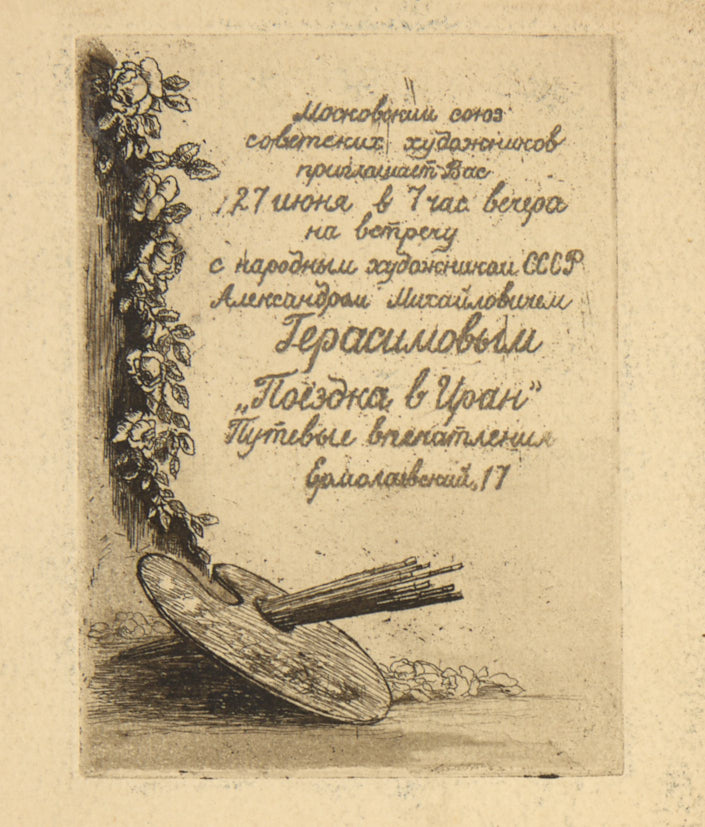 Московский союз
советских художников
приглашает Вас
27 июня в 7 час вечера
на встречу
с народным художником СССР
Александром Михайловичем
Герасимовым
„Поездка в Иран"
Путевые впечатления
Ермолаевский, 17